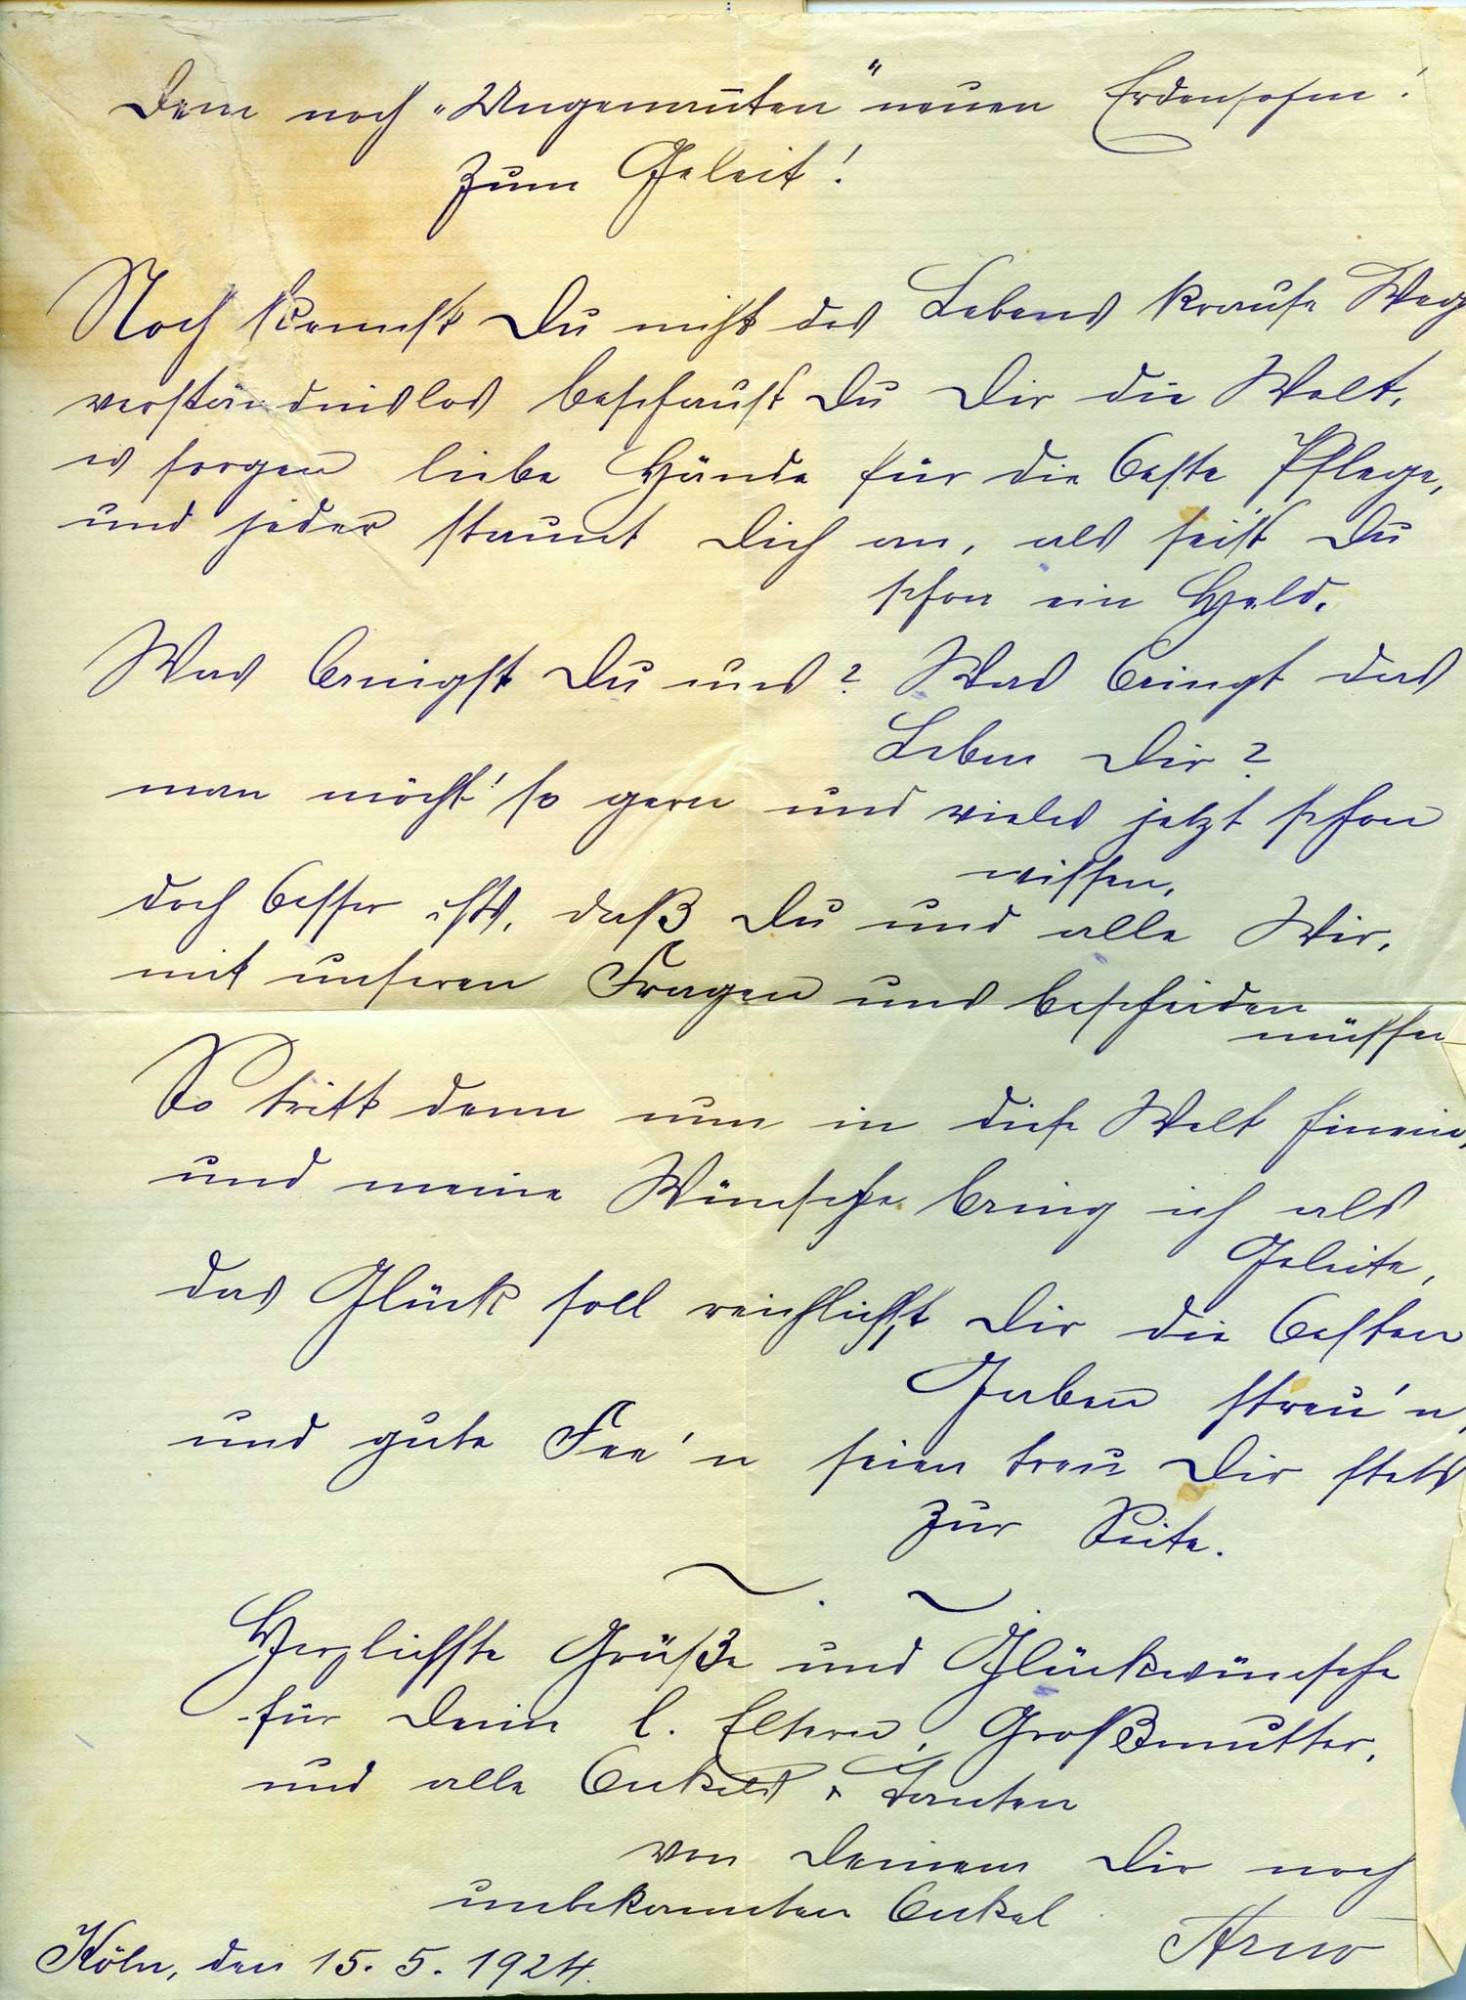 Dem noch „Ungenannten" neuen Erdensohn!
Zum Geleit!
Noch kennst Du nicht des Lebens krause Weg
verständnislos beschaust Du Dir die Welt,
es sorgen liebe Hände für die beste Pflege,
und jeder staunt Dich an, als seist Du
schon ein Held.
Was bringst Du uns? Was bringt das
Leben Dir?
man möcht' so gern uns vieles jetzt schon
wissen,
doch besser ists, daß Du und alle Wir,
mit unseren Fragen uns bescheiden
müssen
So tritt denn nun in diese Welt hinein,
und meine Wünsche bring ich als
Geleite,
das Glück soll reichlichst Dir die besten
Gaben streu'n,
und gute Fee'n seien treu Dir stets
zur Seite.
Herzlichste Grüße und Glückwünsche
für Deine l. Eltern, Großmutter,
und alle Onkels & Tanten
von Deinem Dir noch
unbekannten Onkel
Arno
Köln, den 15. 5. 1924.